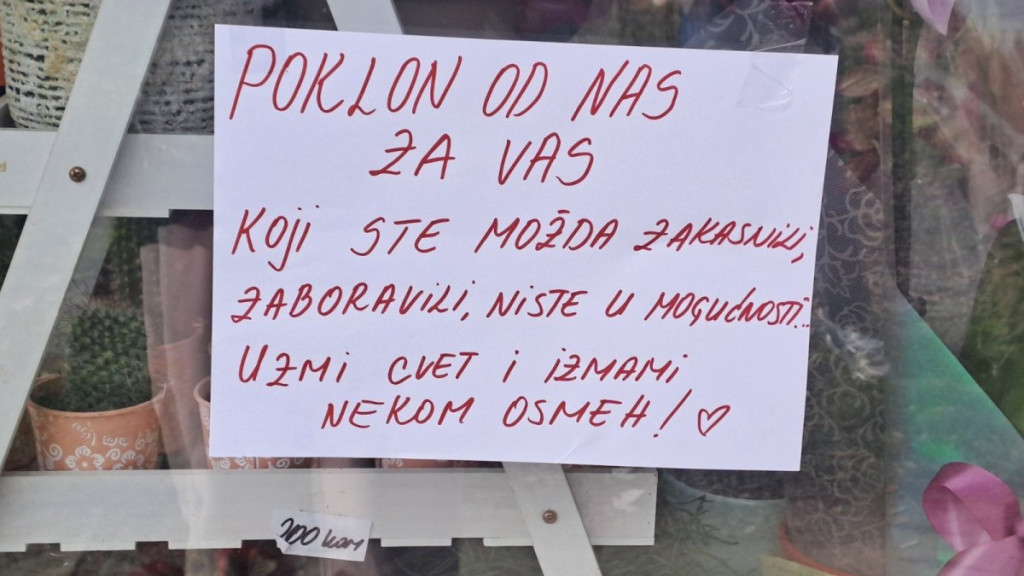 POKLON OD NAS
ZA VAS
KOJI STE MOŽDA ZAKASNILI,
ZABORAVILI, NISTE U MOGUĆNOSTI...
UZMI CVET I IZMAMI
NEKOM OSMEH! ♡
200 kom